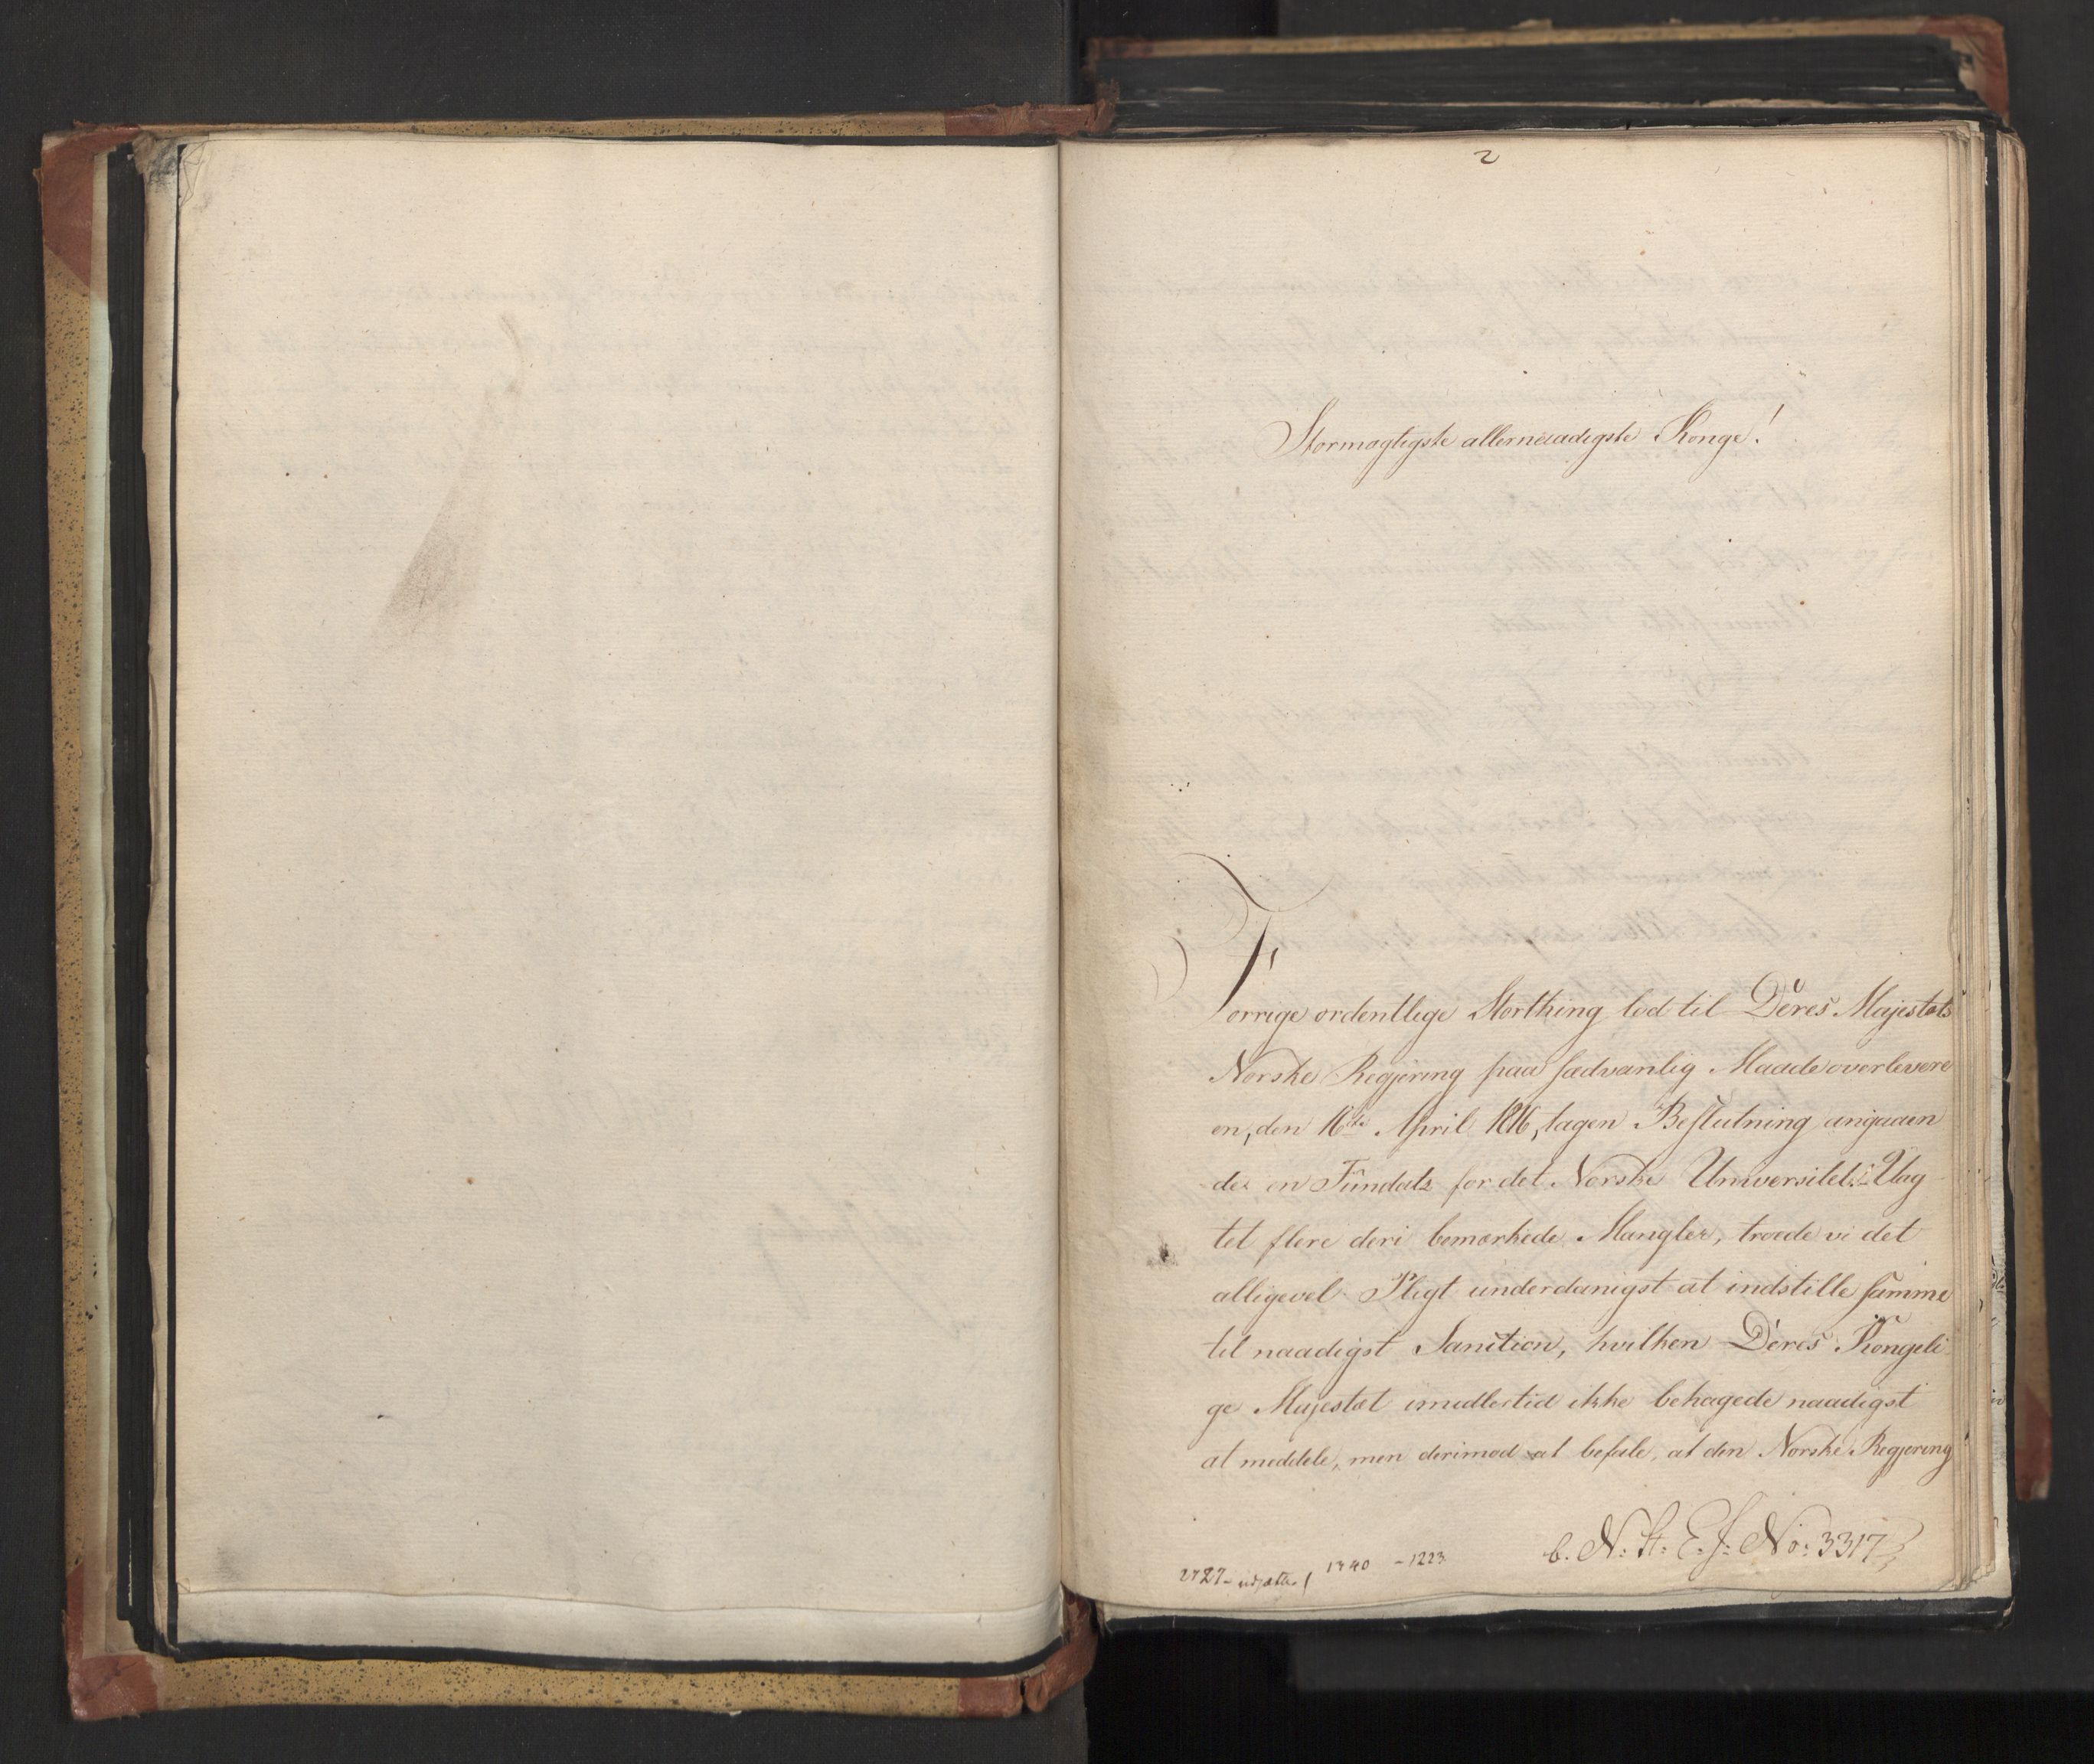 2
Stormægtigste allernaadigste Konge!
Forrige ordentlige Storthing lod til Deres Majestæts
Norske Regjering paa sædvanlig Maade overlevere
en, den 16de April 1816, tagen Beslutning angaaen
de en Fundats for det Norske Universitet. Uag
tet flere deri bemærkede Mangler, troede vi det
alligevel Pligt underdanigst at indstille samme
til naadigst Sanction, hvilken Deres Kongeli
ge Majestæt imidlertid ikke behagede naadigst
at meddele, men derimod at befale, at den Norske Regjering
b. N: St: E: J: No: 3317
2727 - 1740 - 1223